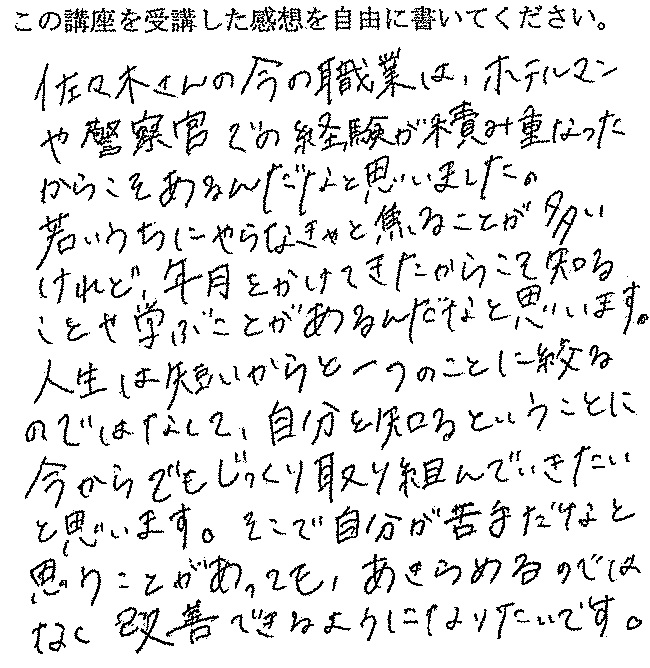 この講座を受講した感想を自由に書いてください。
佐々木さんの今の職業は、ホテルマン
や警察官での経験が積み重なった
からこそあるんだなと思いました。
若いうちにやらなきゃと焦ることが多い
けれど、年月をかけてきたからこそ知る
ことや学ぶことがあるんだなと思います。
人生は短いからと一つのことに絞る
のではなくて、自分を知るということに
今からでもじっくり取り組んでいきたい
と思います。そこで自分が苦手だなと
思うことがあっても、あきらめるのでは
なく改善できるようになりたいです。